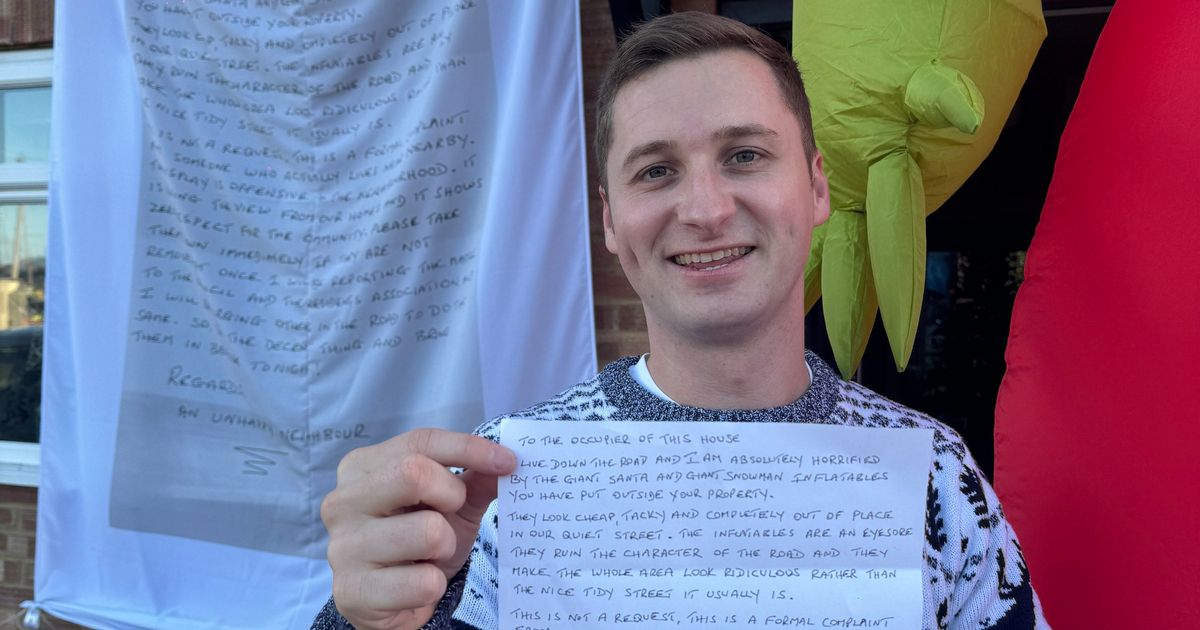 YOU HAVE OUTSIDE YOUR PROPERTY.
THEY LOOK TACKY AND COMPLETELY OUT OF PLACE
IN OUR QUIET STREET. THE INFLATABLES ARE AN
THEY RUIN THE CHARACTER OF THE ROAD AND
MAKE THE WHOLE AREA LOOK RIDICULOUS
NICE TIDY STREET IT USUALLY IS.
IS NOT A REQUEST, THIS IS A FORMAL COMPLAINT
SOMEONE WHO ACTUALLY LIVES NEARBY.
DISPLAY IS OFFENSIVE NEIGHBOURHOOD. IT
THE VIEW FROM OUR HOMES AND IT SHOWS
RESPECT FOR THE COMMUNITY. PLEASE TAKE
DOWN IMMEDIATELY IF ARE NOT
ONCE. I REPORTING THE
TO THE AND THE ASSOCIATION
I WILL OTHER IN THE ROAD TO DO
SAME. SO THE DECENT THING AND
THEM IN TONIGHT
REGARD
AN NEIGHBOUR
TO THE OCCUPIER OF THIS HOUSE
LIVE DOWN THE ROAD AND I AM ABSOLUTELY HORRIFIED
BY THE GIANT SANTA AND GIANT SNOWMAN INFLATABLES
YOU HAVE PUT OUTSIDE YOUR PROPERTY.
THEY LOOK CHEAP, TACKY AND COMPLETELY OUT OF PLACE
IN OUR QUIET STREET. THE INFLATABLES ARE AN EYESORE
THEY RUIN THE CHARACTER OF THE ROAD AND THEY
MAKE THE WHOLE AREA LOOK RIDICULOUS RATHER THAN
THE NICE TIDY STREET IT USUALLY IS.
THIS IS NOT A REQUEST, THIS IS A FORMAL COMPLAINT